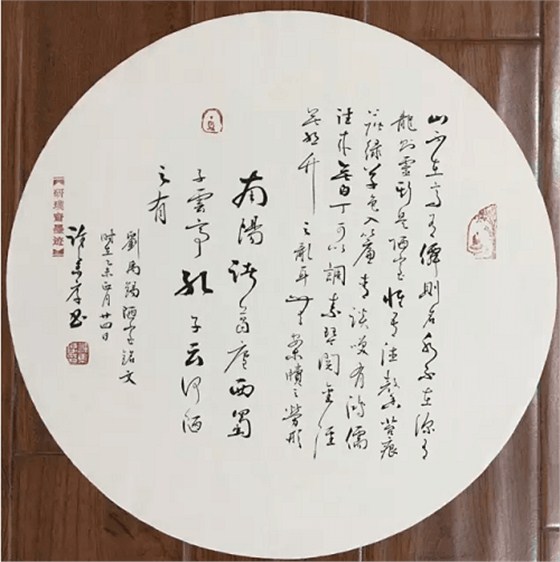 山不在高有僊則名水不在深有
龍則靈斯是陋室惟吾德馨苔痕
階綠草色入簾青談笑有鴻儒
往來無白丁可以調素琴閱金經
無絲竹之亂耳無案牘之勞形
南陽諸葛廬西蜀
子雲亭孔子云何陋
之有
劉禹錫陋室銘文
時在乙未正月廿四日